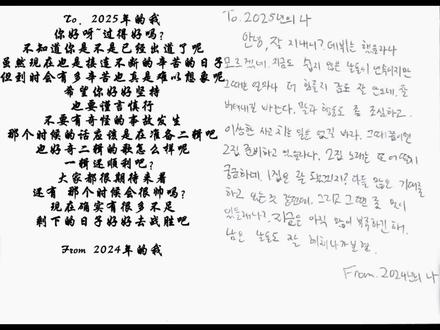 To. 2025年的我
你好呀~过得好吗?
不知道你是不是已经出道了呢
虽然现在也是接连不断的辛苦的日子
但到时会有多辛苦也真是难以想象呢
希望你好好坚持
也要谨言慎行
不要有奇怪的事故发生
那个时候的话应该是在准备二辑吧
也好奇二辑的歌怎么样呢
一辑还顺利吧?
大家都很期待来着
还有 那个时候会很帅吗?
现在确实有很多不足
剩下的日子好好去战胜吧
From 2024年的我
To. 2025년의 나
안녕, 잘 지내니? 데뷔는 했을라나
모르겠네. 지금도 쉽지 않은 날들이 연속이지만
그때는 얼마나 더 힘들지 감도 잘 안오네. 잘
버텨내길 바란다. 말과 행동도 좀 조심하고.
이상한 사고 치는 일은 없길 바라. 그때쯤이면
2집 준비하고 있을라나. 2집 노래는 또 어떨지
궁금하네. 1집은 잘 됐겠지? 다들 많은 기대를
하고 있는 것 같던데. 그리고 그때 좀 멋이
있을라나? 지금은 아직 많이 부족하긴 해.
남은 날들도 잘 헤쳐나가
From. 2024년의 나